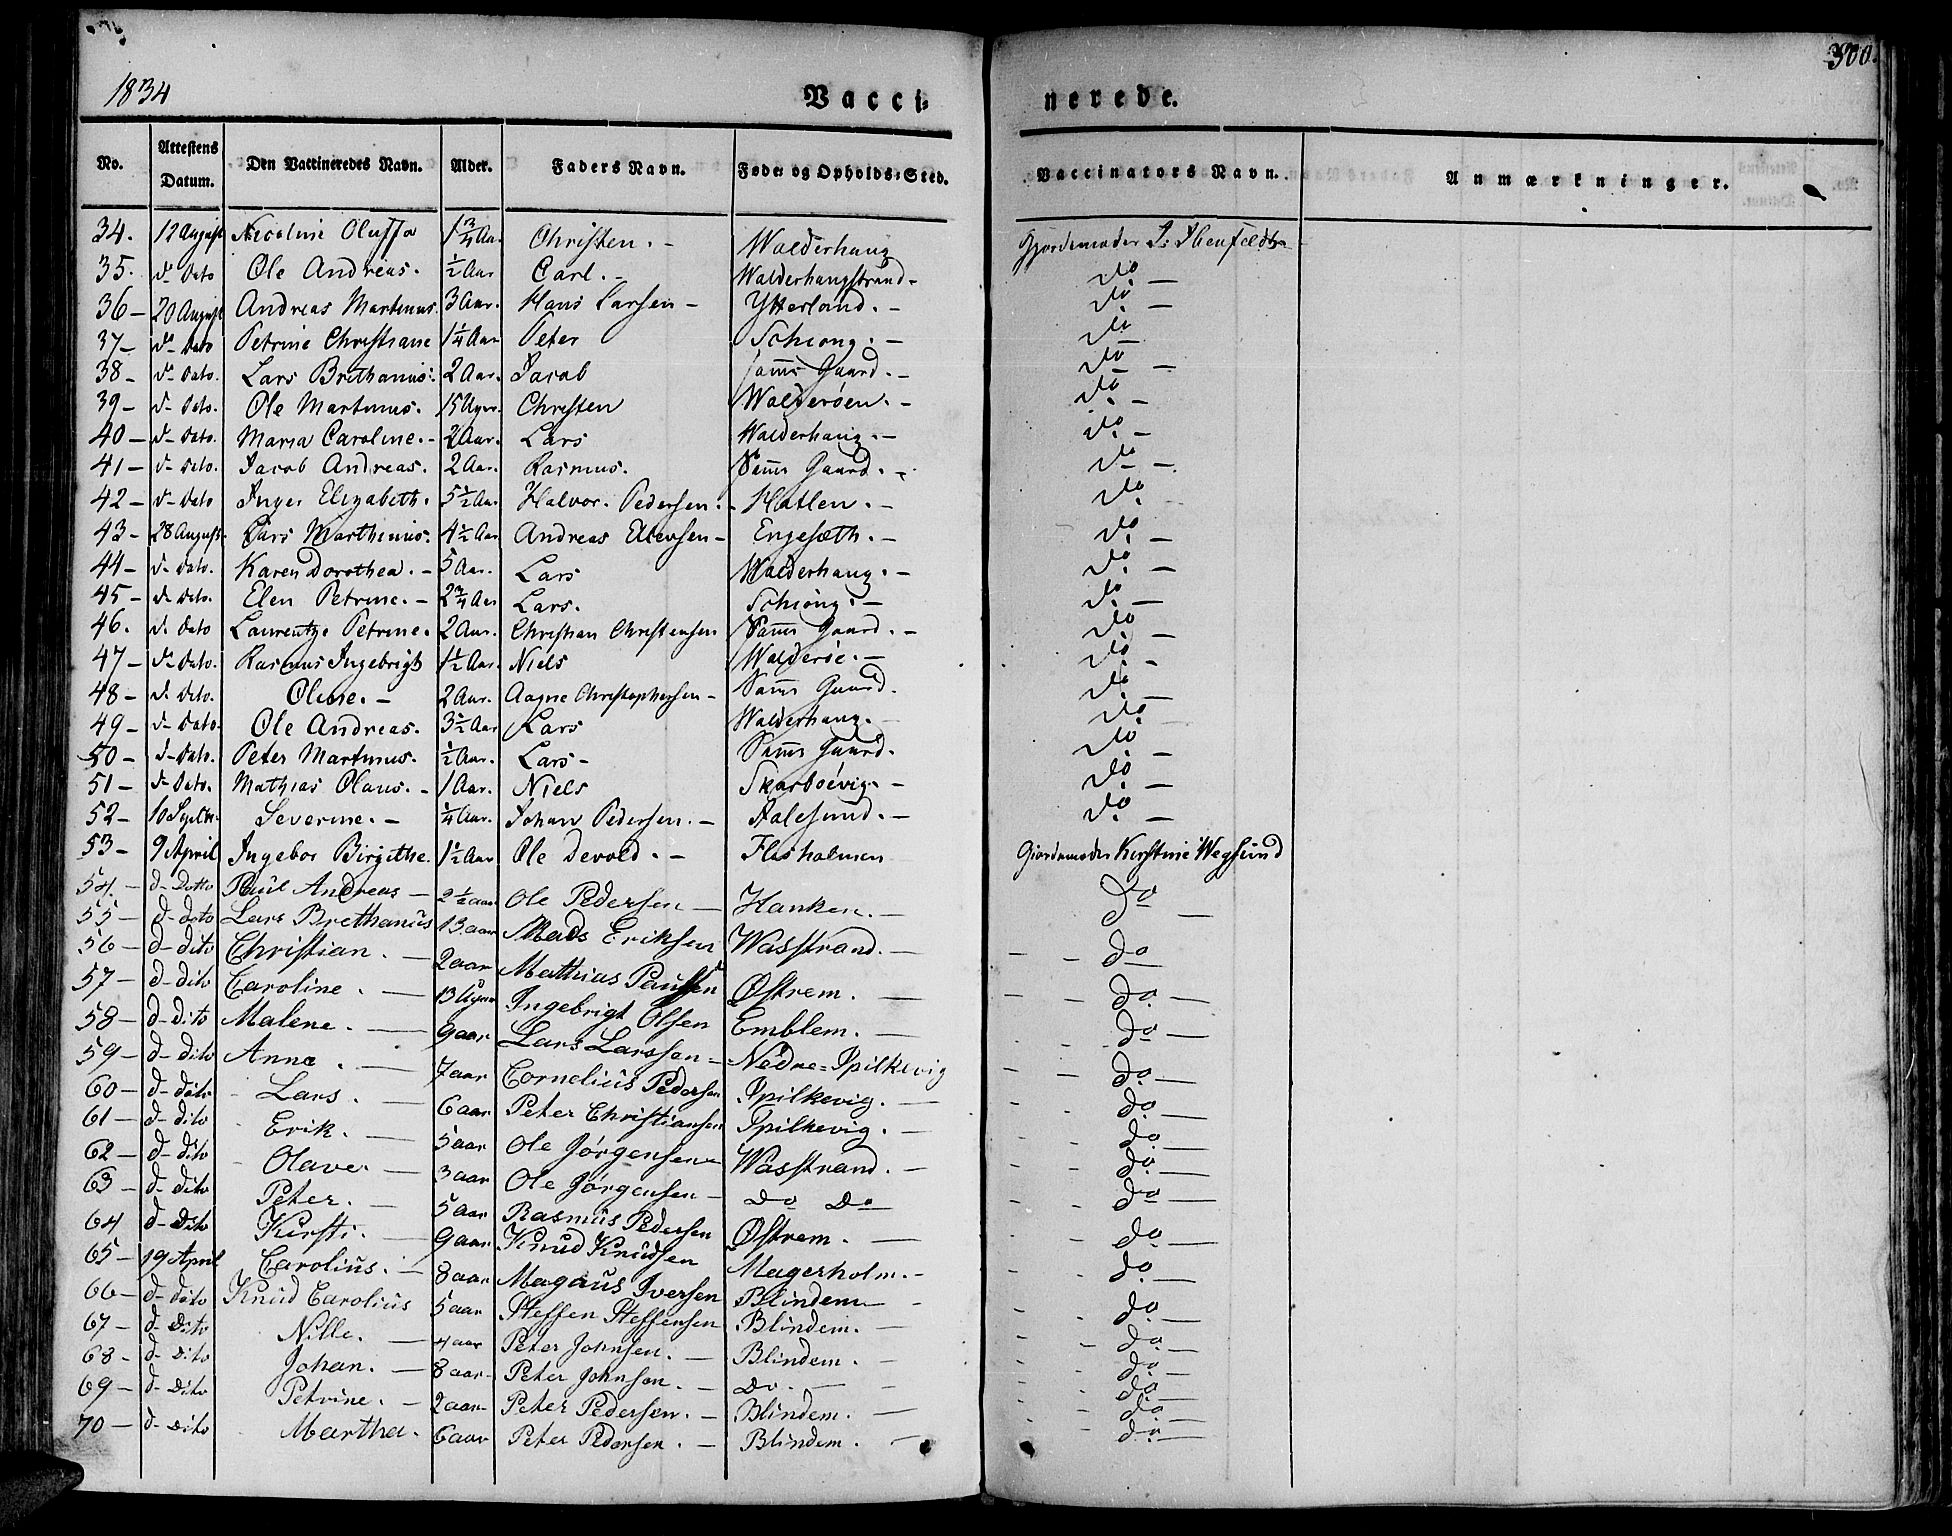 300.
1834
Vacci-
nerede.
No. Attestens Datum. Den Vaccineredes Navn. Alder. Faders Navn. Føde- og Opholds-Sted. Vaccinators Navn. Anmærkninger.
34. 12 August Nicoline Oluffa 1 3/4 Aar Christen. - Walderhaug Gjordemoder
35. d- Dato Ole Andreas. 1/2 Aar Carl. - Walderhaugstrand - do -
36 - 20 August Andreas Martinus. 3 Aar. Hans Larsen - Ytterland. - do -
37 - d- Dato Petrine Christiane 1 1/4 Aar Peter Schiong. - do
38 - d- Dato. Lars Brethanius. 2 Aar. Jacob Samme Gaard. - do -
39 - d- Dato. Ole Martinus. 15 Uger. Christen Walderøen. - do -
40 - d- Dato. Maria Caroline. - 2 Aar. Lars Walderhaug. - do -
41 - d- Dato. Jacob Andreas. 2 Aar. Rasmus. Samme Gaard. - do -
42 - d- Dato Inger Elizabeth. 5 1/2 Aar Halvor. Pedersen. - Hatlen. - do -
43 - 28 August Lars Marthinus. 4 1/2 Aar Andreas Ellevsen - Engesæth. - do -
44 - d- Dato. Karen Dorothea. - 5 Aar. Lars Walderhaug. - do -
45 - d- Dato. Elen Petrine. - 2 3/4 Aar Lars. Schiong. - do -
46. d. Dato Laurentze Petrine. 2 Aar. Christian Christensen Samme Gaard. - do -
47 - d- Dato. Rasmus Ingebrigt 1 1/2 Aar. Niels Walderøe. - do -
48 - d. Dato. Oline. - 2 Aar. Aagne Christophersen - Samme Gaard. do -
49 - d- Dato. Ole Andreas. 3 1/2 Aar Lars Walderhaug. - do -
50 - d- Dato. Peter Martinus. 1/2 Aar. Lars - Samme Gaard. do -
51 - d- Dato. Mathias Olaus. - 1 Aar. Niels Skarboevig. - do -
52 - 10 Septbr. Severine. - 1/4 Aar. Johan Pedersen. - Aalesund. - do -
53 - 9 April Ingebor Birgithe. 1 1/2 Aar Ole Devold. - Flisholmen Gjordemoder Kirstine Wegsund
54. - d- Dotto Paul Andreas - 2 1/2 aar Ole Pedersen - Hanken. - do -
55 - d- doto Lars Brethanius 13 aar Mads Eriksen Wasstrand. - do
56 - d- dito Christian. - 2 aar Mathias Paulsen Østrem. - do -
57 - d- dito Caroline. - 13 Uger Ingebrigt Olsen Emblem. - do -
58 - d- Dito Malene. - 9 aar Lars Larssen - Nedre-Spilkevig do -
59 - d- dito Anna. - 7 aar Cornelius Pedersen Spilkevig. - do -
60 - d- dito Lars. - 6 aar Peter Christiansen Spilkevig. - do -
61 - d- dito Erik. - 5 aar Ole Jørgensen Wasstrand. - do -
62 - d- dito Olave - 3 aar Ole Jørgensen - Do Do do -
63 - d- dito Peter. - 5 aar Rasmus Pedersen Østrem. - do -
64 - d- Dito Kirsti. - 9 aar Knud Knudsen Magerholm. - do -
65 - 19 April Carolius. - 8 aar Magnus Iversen Blindem - do -
66 - d- dito Knud Carolius 5 aar Steffen Steffensen Blindem. - do -
67 - d- Dito Nille. - 4 aar Peter Johnsen. - Blindem. - do -
68 - d- Dito Johan. - 8 aar - Peter Johnsen. - Do. - do -
69 - d- Dito Petrine. - 2 aar - Peter Pedersen. - Blindem. - do -
70 - d- Dito Martha. 6 aar Peter Pedersen. - Blindem. - do -